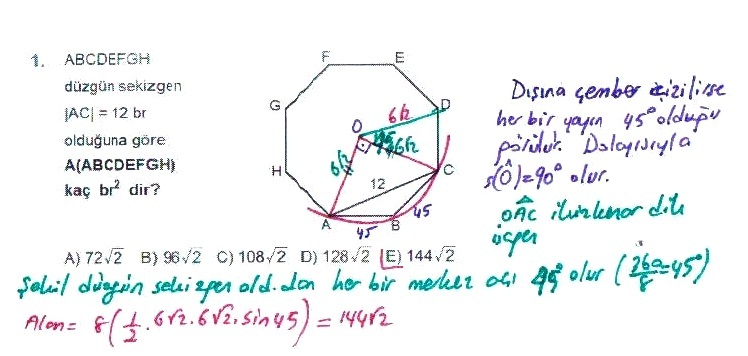 1. ABCDEFGH
düzgün sekizgen
|AC| = 12 br
olduğuna göre
A(ABCDEFGH)
kaç br² dir?
F E
G D
6√2
O
45 6√2
6√2
H C
12
A B
45 45
Dışına çember çizilirse
her bir yayın 45° olduğu
görülür. Dolayısıyla
s(Ô)=90° olur.
OAC ikizkenar dik
üçgen
A) 72√2 B) 96√2 C) 108√2 D) 128√2 E) 144√2
Şekil düzgün sekizgen old. dan her bir merkez açı 45° olur (360/8=45°)
Alan= 8(1/2 . 6√2 . 6√2 . sin45) = 144√2